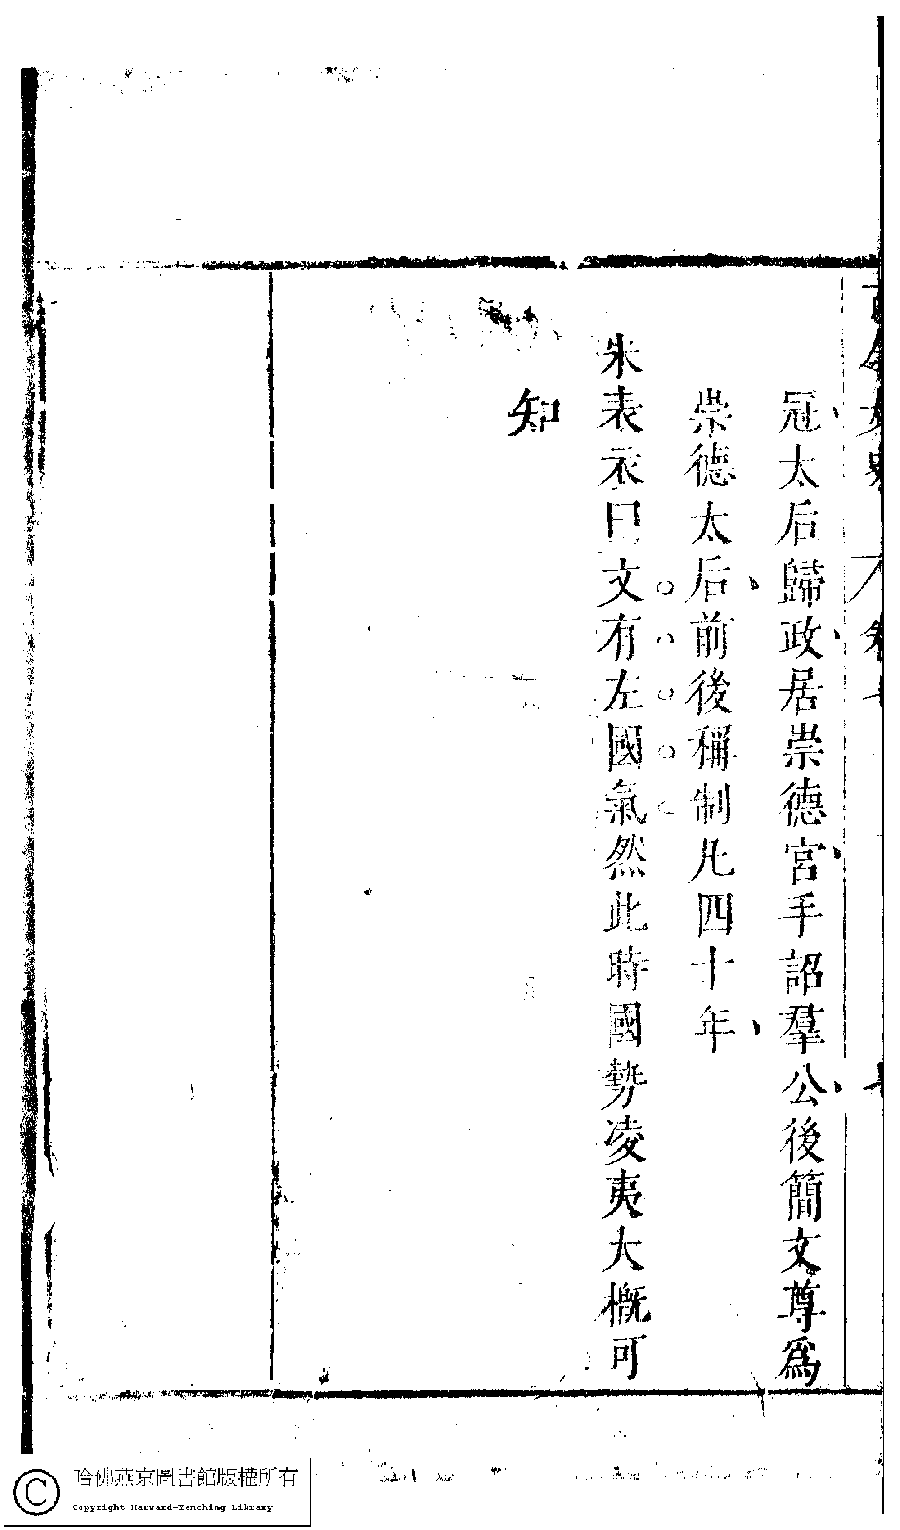 冠太后歸政居崇德宮手詔羣公後簡文尊爲
崇德太后前後稱制凡四十年
朱表示曰文有左國氣然此時國勢凌夷大概可
知
哈佛燕京圖書館版權所有
Copyright Harvard-Yenching Library